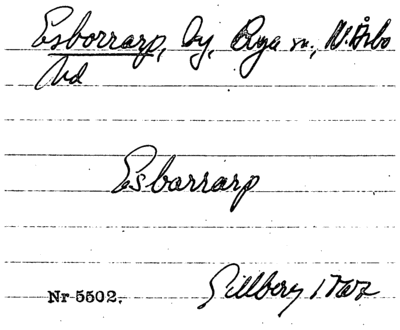 Esborrarp, by, Öja sn, V. Åsbo
hd
Esbarrarp
Nr 5502. Gillberg 1767